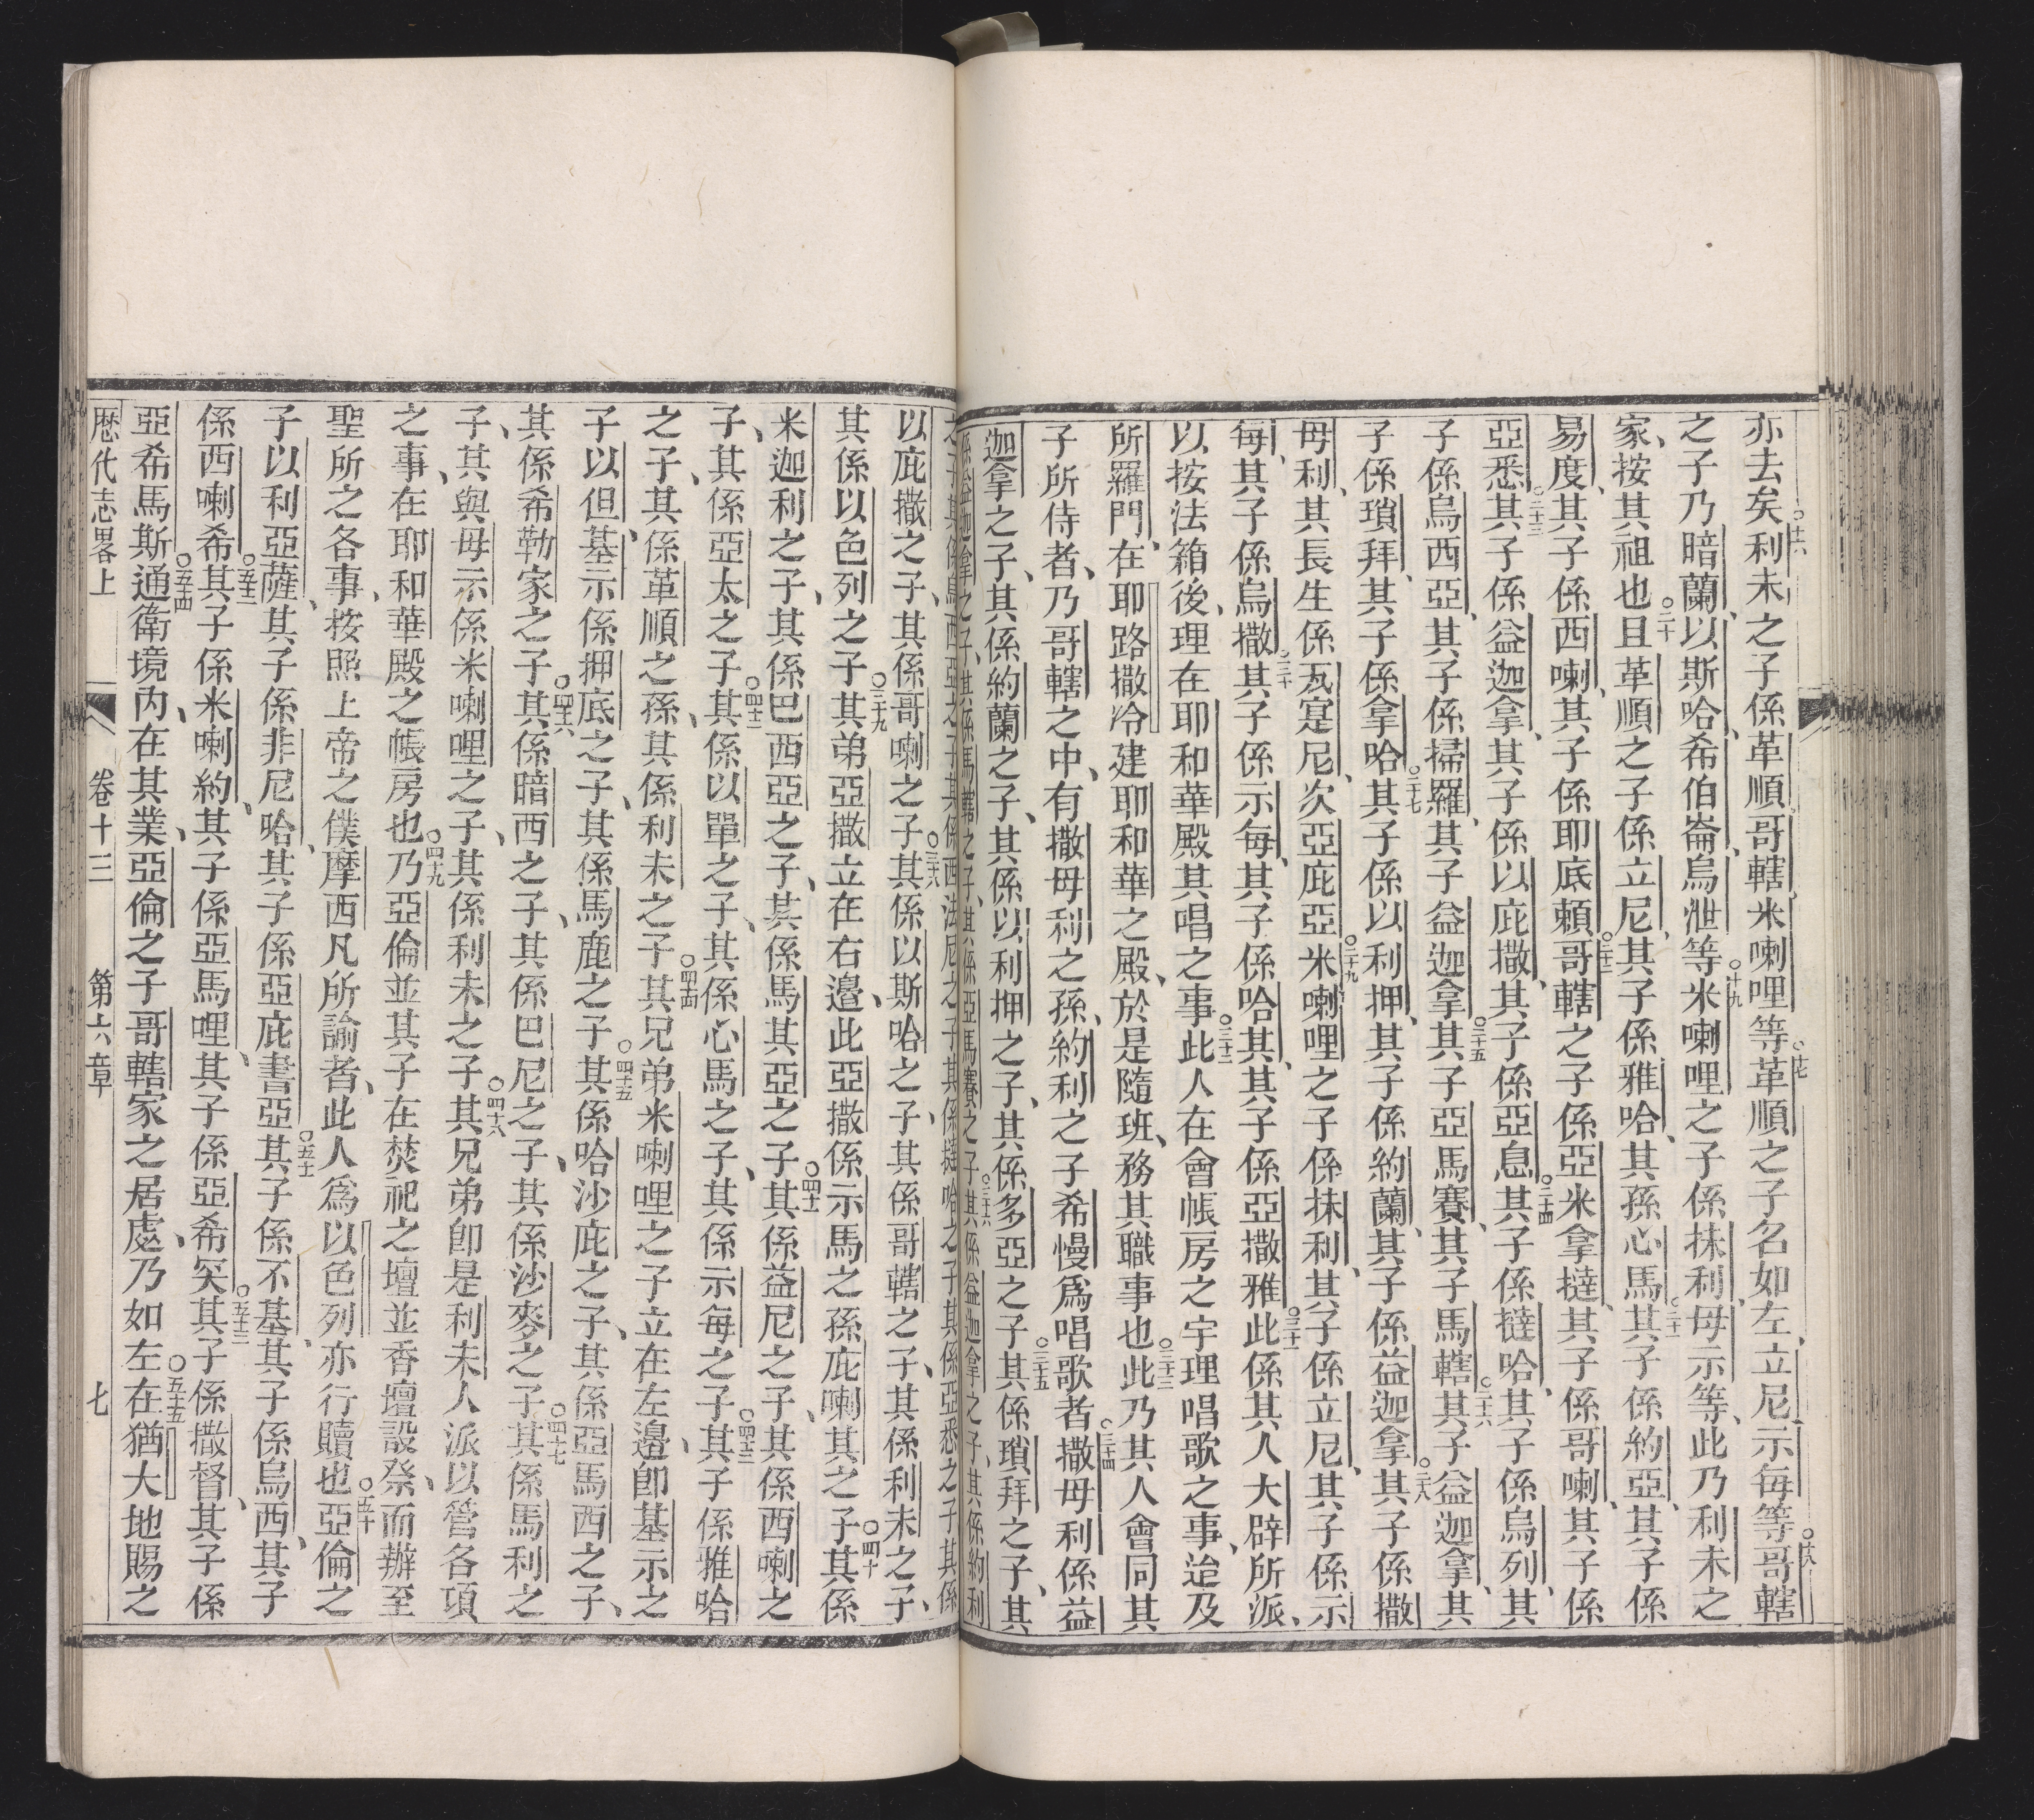 亦去矣○十六利未之子係革順、哥轄、米喇哩等○十七革順之子名如左、立尼、示每等○十八哥轄
之子乃暗蘭、以斯哈、希伯崙、烏泄等○十九米喇哩之子係抹利、毋示等、此乃利未之
家、按其祖也○二十且革順之子係立尼、其子係雅哈、其孫心馬○二十一其子係約亞、其子係
易度、其子係西喇、其子係耶底賴○二十二哥轄之子係亞米拿撻、其子係哥喇、其子係
亞悉○二十三其子係益迦拿、其子係以庇撒、其子係亞息○二十四其子係撻哈、其子係烏列、其
子係烏西亞、其子係掃羅、其子益迦拿○二十五其子亞馬賽、其子馬轄○二十六其子益迦拿、其
子係瑣拜、其子係拿哈○二十七其子係以利押、其子係約蘭、其子係益迦拿○二十八其子係撒
毋利、其長生係瓦寔尼、次亞庇亞○二十九米喇哩之子係抹利、其子係立尼、其子係示
每、其子係烏撒○三十其子係示每、其子係哈其、其子係亞撒雅○三十一此係其人大辟所派、
以按法箱後、理在耶和華殿其唱之事○三十二此人在會帳房之宇理唱歌之事、迨及
所羅門、在耶路撒冷建耶和華之殿、於是隨班、務其職事也○三十三此乃其人會同其
子所侍者、乃哥轄之中、有撒毋利之孫、約利之子希慢爲唱歌者○三十四撒毋利係益
迦拿之子、其係約蘭之子、其係以利押之子、其係多亞之子○三十五其係瑣拜之子、其
係益迦拿之子、其係馬轄之子、其係亞馬賽之子○三十六其係益迦拿之子、其係約利
之子其係烏西亞之子其係西法尼之子其係撻哈之子其係亞悉之子其係
以庇撒之子、其係哥喇之子○三十八其係以斯哈之子、其係哥轄之子、其係利未之子、
其係以色列之子○三十九其弟亞撒立在右邊、此亞撒係示馬之孫庇喇其之子○四十其係
米迦利之子、其係巴西亞之子、其係馬其亞之子○四十一其係益尼之子、其係西喇之
子、其係亞太之子○四十二其係以單之子、其係心馬之子、其係示每之子○四十三其子係雅哈
之子、其係革順之孫、其係利未之子○四十四其兄弟米喇哩之子立在左邊、卽基示之
子以但、基示係押底之子、其係馬鹿之子○四十五其係哈沙庇之子、其係亞馬西之子、
其係希勒家之子○四十六其係暗西之子、其係巴尼之子、其係沙麥之子○四十七其係馬利之
子、其與毋示係米喇哩之子、其係利未之子○四十八其兄弟卽是利未人派以管各項
之事、在耶和華殿之帳房也○四十九乃亞倫並其子在焚祀之壇並香壇設祭、而辦至
聖所之各事、按照上帝之僕摩西凡所諭者、此人爲以色列亦行贖也○五十亞倫之
子以利亞薩、其子係非尼哈、其子係亞庇書亞○五十一其子係不基、其子係烏西、其子
係西喇希○五十二其子係米喇約、其子係亞馬哩、其子係亞希突○五十三其子係撒督、其子係
亞希馬斯○五十四通衛境內、在其業、亞倫之子哥轄家之居處、乃如左○五十五在猶大地賜之
歷代志畧上 卷十三 第六章 七